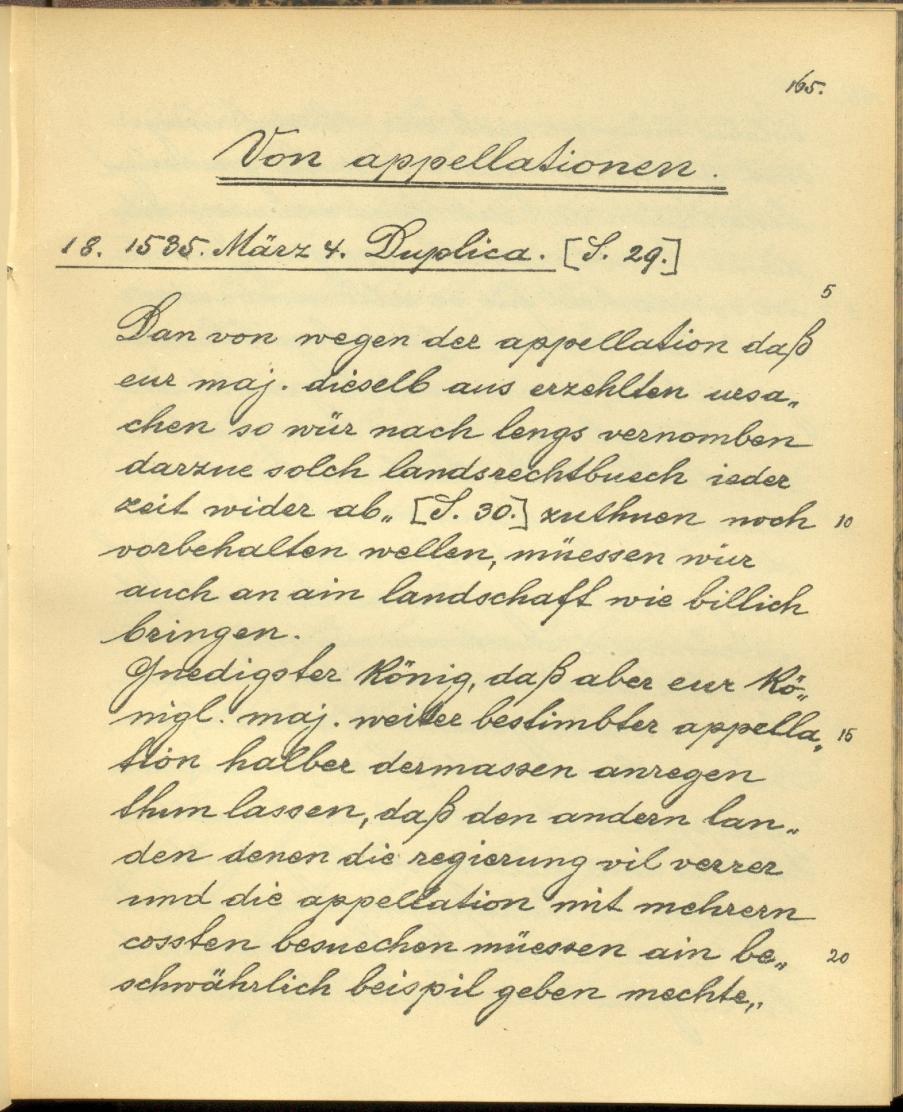 165.
Von appellationen.
18. 1535. März 4. Duplica. [S. 29.]
5
Dan von wegen der appellation daß
eur maj. dieselb aus erzehlten ursa„
chen so wür nach lengs vernomben
darzue solch landsrechtbuech ieder
zeit wider ab„ [S. 30.] zuthuen noch 10
vorbehalten wellen, müessen wür
auch an ain landschaft wie billich
bringen.
Gnedigster König, daß aber eur Kö„
nigl. maj. weiter bestimbter appella„ 15
tion halber dermassen anregen
thun lassen, daß den andern lan„
den denen die regierung vil verrer
und die appellation mit mehrern
cossten besuechen müessen ain be„ 20
schwährlich beispil geben mechte„